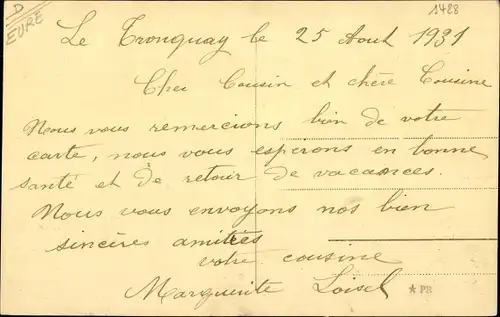 D
EURE
1488
Le Tronquay le 25 Aout 1931
Cher Cousin et chère Cousine
Nous vous remercions bien de votre
carte, nous vous esperons en bonne
santé et de retour de vacances.
Nous vous envoyons nos bien
sincères amitées
votre cousine
Marguerite Loisel
*PB